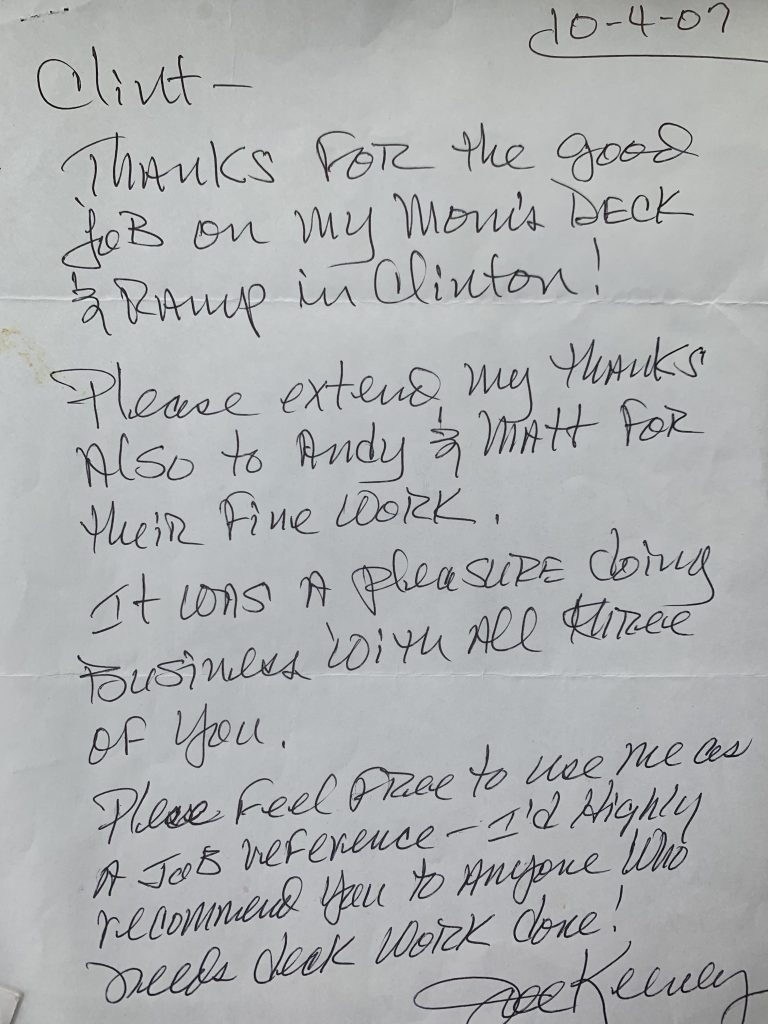 10-4-07
Clint -
THANKS FOR the good
JOB on my Mom's DECK
& RAMP in Clinton!
Please extend my thANKS
Also to Andy & MAtt FOR
their Fine WORK.
It WAS A pleaSURE doing
Business With All three
of You.
Please Feel FRee to use me as
A JOB reference - I'd Highly
recommend You to Anyone Who
needs deck WORK done!
Joe Keeney